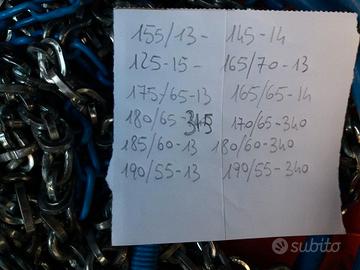 155/13 - 145-14
125-15 - 165/70-13
175/65-13 165/65-14
180/65-315 170/65-340
185/60-13 180/60-340
190/55-13 190/55-340
subito